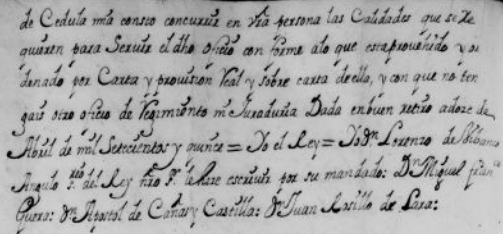 de Cedula mia consto concurrir en vra persona las Calidades que se Re
quieren para Servir el dho oficio con forme alo que esta prouehido y or
denado por Carta y provision Real y sobre carta de ello, y con que no ten
gais otro oficio de Regimiento ni Juraduria Dada en buen retiro a doze de
Abril de mil Setecientos y quince = Yo el Rey = Yo Dn Lorenzo de Vibanco
Angulo srio del Rey nro Sr. le hize escriuir por su mandado: Dn Miguel fran.co
Guerra: Dn Apostol de Cañas y Castilla: Dn Juan Rosillo de Lara: